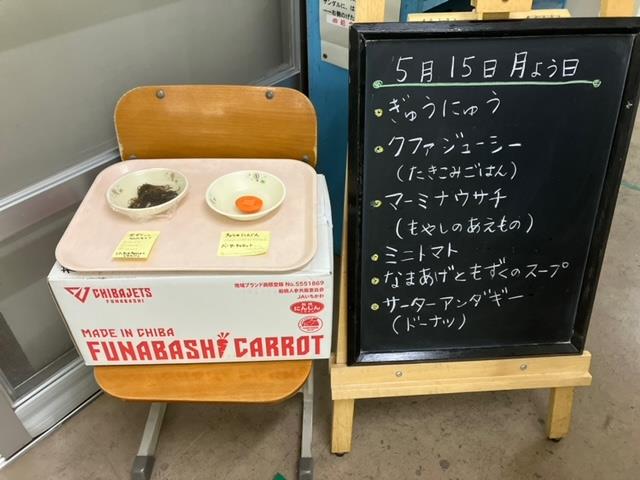 5月15日月よう日
ぎゅうにゅう
クファジューシー
(たきこみごはん)
マーミナウサチ
(もやしのあえもの)
ミニトマト
なまあげともずくのスープ
サーターアンダギー
(ドーナツ)
CHIBAJETS
FUNABASHI
地域ブランド商標登録 No.5551869
JAいちかわ
にんじん
MADE IN CHIBA
FUNABASHI CARROT